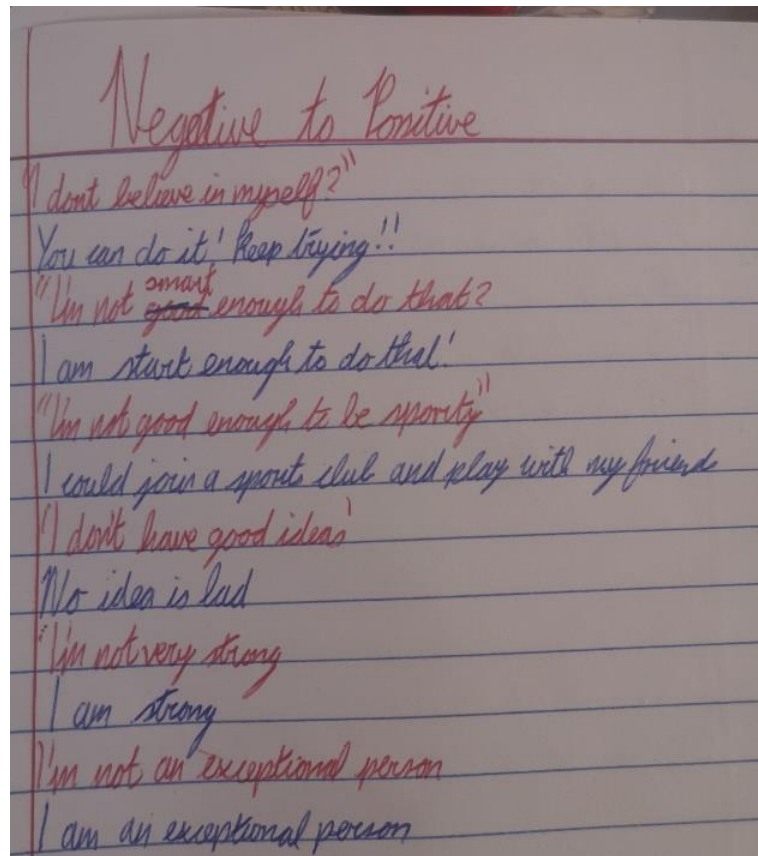 Negative to Positive
"I dont believe in myself?"
You can do it! Keep trying!!
"I'm not smart enough to do that?
I am start enough to do that!
"I'm not good enough to be spority"
I could join a sports club and play with my friends
"I don't have good ideas'
No idea is bad
"I'm not very strong
I am strong
I'm not an exceptional person
I am an exceptional person